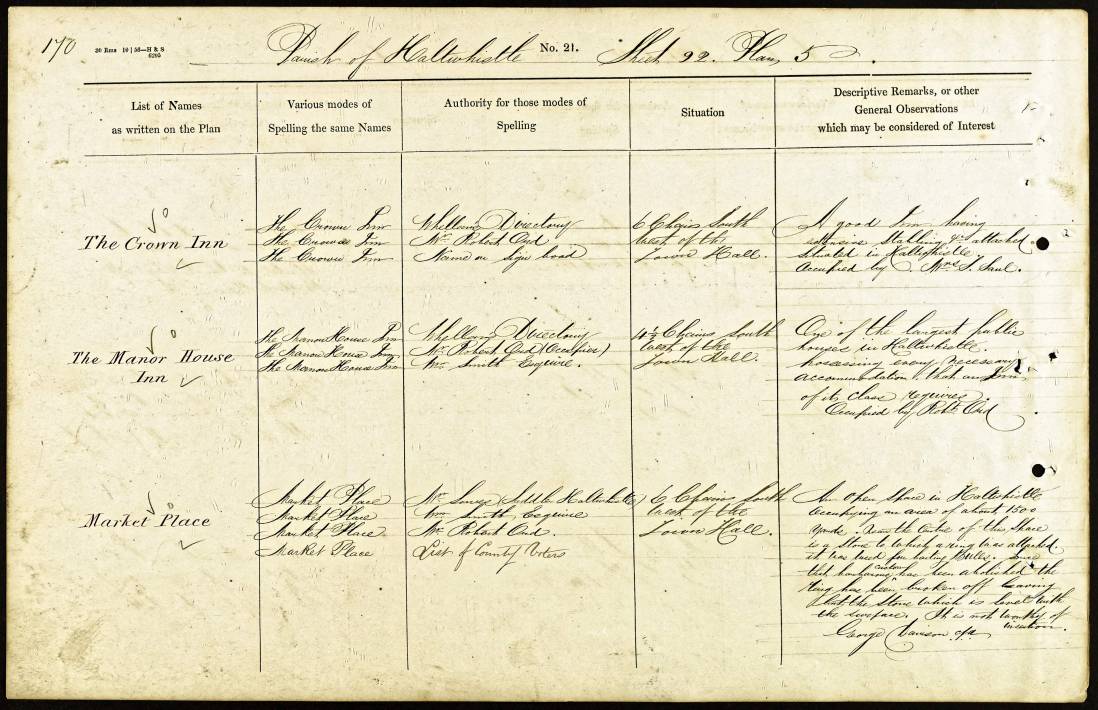 170
20 Rms 10 | 56—H & S
6295
Parish of Haltwhistle No. 21. Sheet 92. Plan 5
List of Names
as written on the Plan
Various modes of
Spelling the same Names
Authority for those modes of
Spelling
Situation
Descriptive Remarks, or other
General Observations
which may be considered of Interest
The Crown Inn
The Crown Inn
The Crown Inn
The Crown Inn
Whellans Directory
Mr. Robert Oud
Name on sign board
6 Chains South
West of the
Town Hall.
A good Inn having
extensive Stabling &c attached
situated in Haltwhistle.
Occupied by Mrs. S. Saul.
The Manor House
Inn
The Manor House Inn
The Manor House Inn
The Manor House Inn
Whellans Directory
Mr. Robert Oud (Occupier)
Wm. Smith Esquire.
4½ Chains South
West of the
Town Hall.
One of the largest public
houses in Haltwhistle.
possessing every necessary
accommodation, that an Inn
of its class requires.
Occupied by Robt. Oud
Market Place
Market Place
Market Place
Market Place
Market Place
Mr. Haltwhistle)
Wm. Smith Esquire
Mr. Robert Oud.
List of County Voters
6 Chains South
West of the
Town Hall.
An Open Space in Haltwhistle
Occupying an area of about 1500
yards. Near the Centre of this Space
is a Stone to which a ring was attached
it was used for baiting Bulls. Since
that barbarous custom has been abolished the
ring has been broken off leaving
the Stone which is level with
the surface. It is not worthy of
insertion.
George